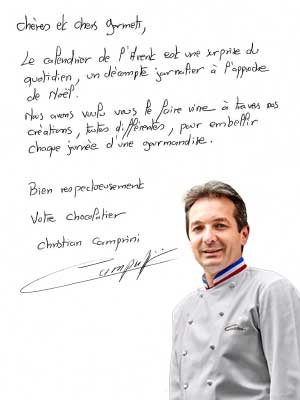 chères et chers gourmets,
Le calendrier de l'Avent est une surprise du
quotidien, un décompte journalier à l'approche
de Noël.
Nous avons voulu vous le faire vivre à travers nos
créations, toutes différentes, pour embellir
chaque journée d'une gourmandise.
Bien respectueusement
Votre chocolatier
Christian Camprini